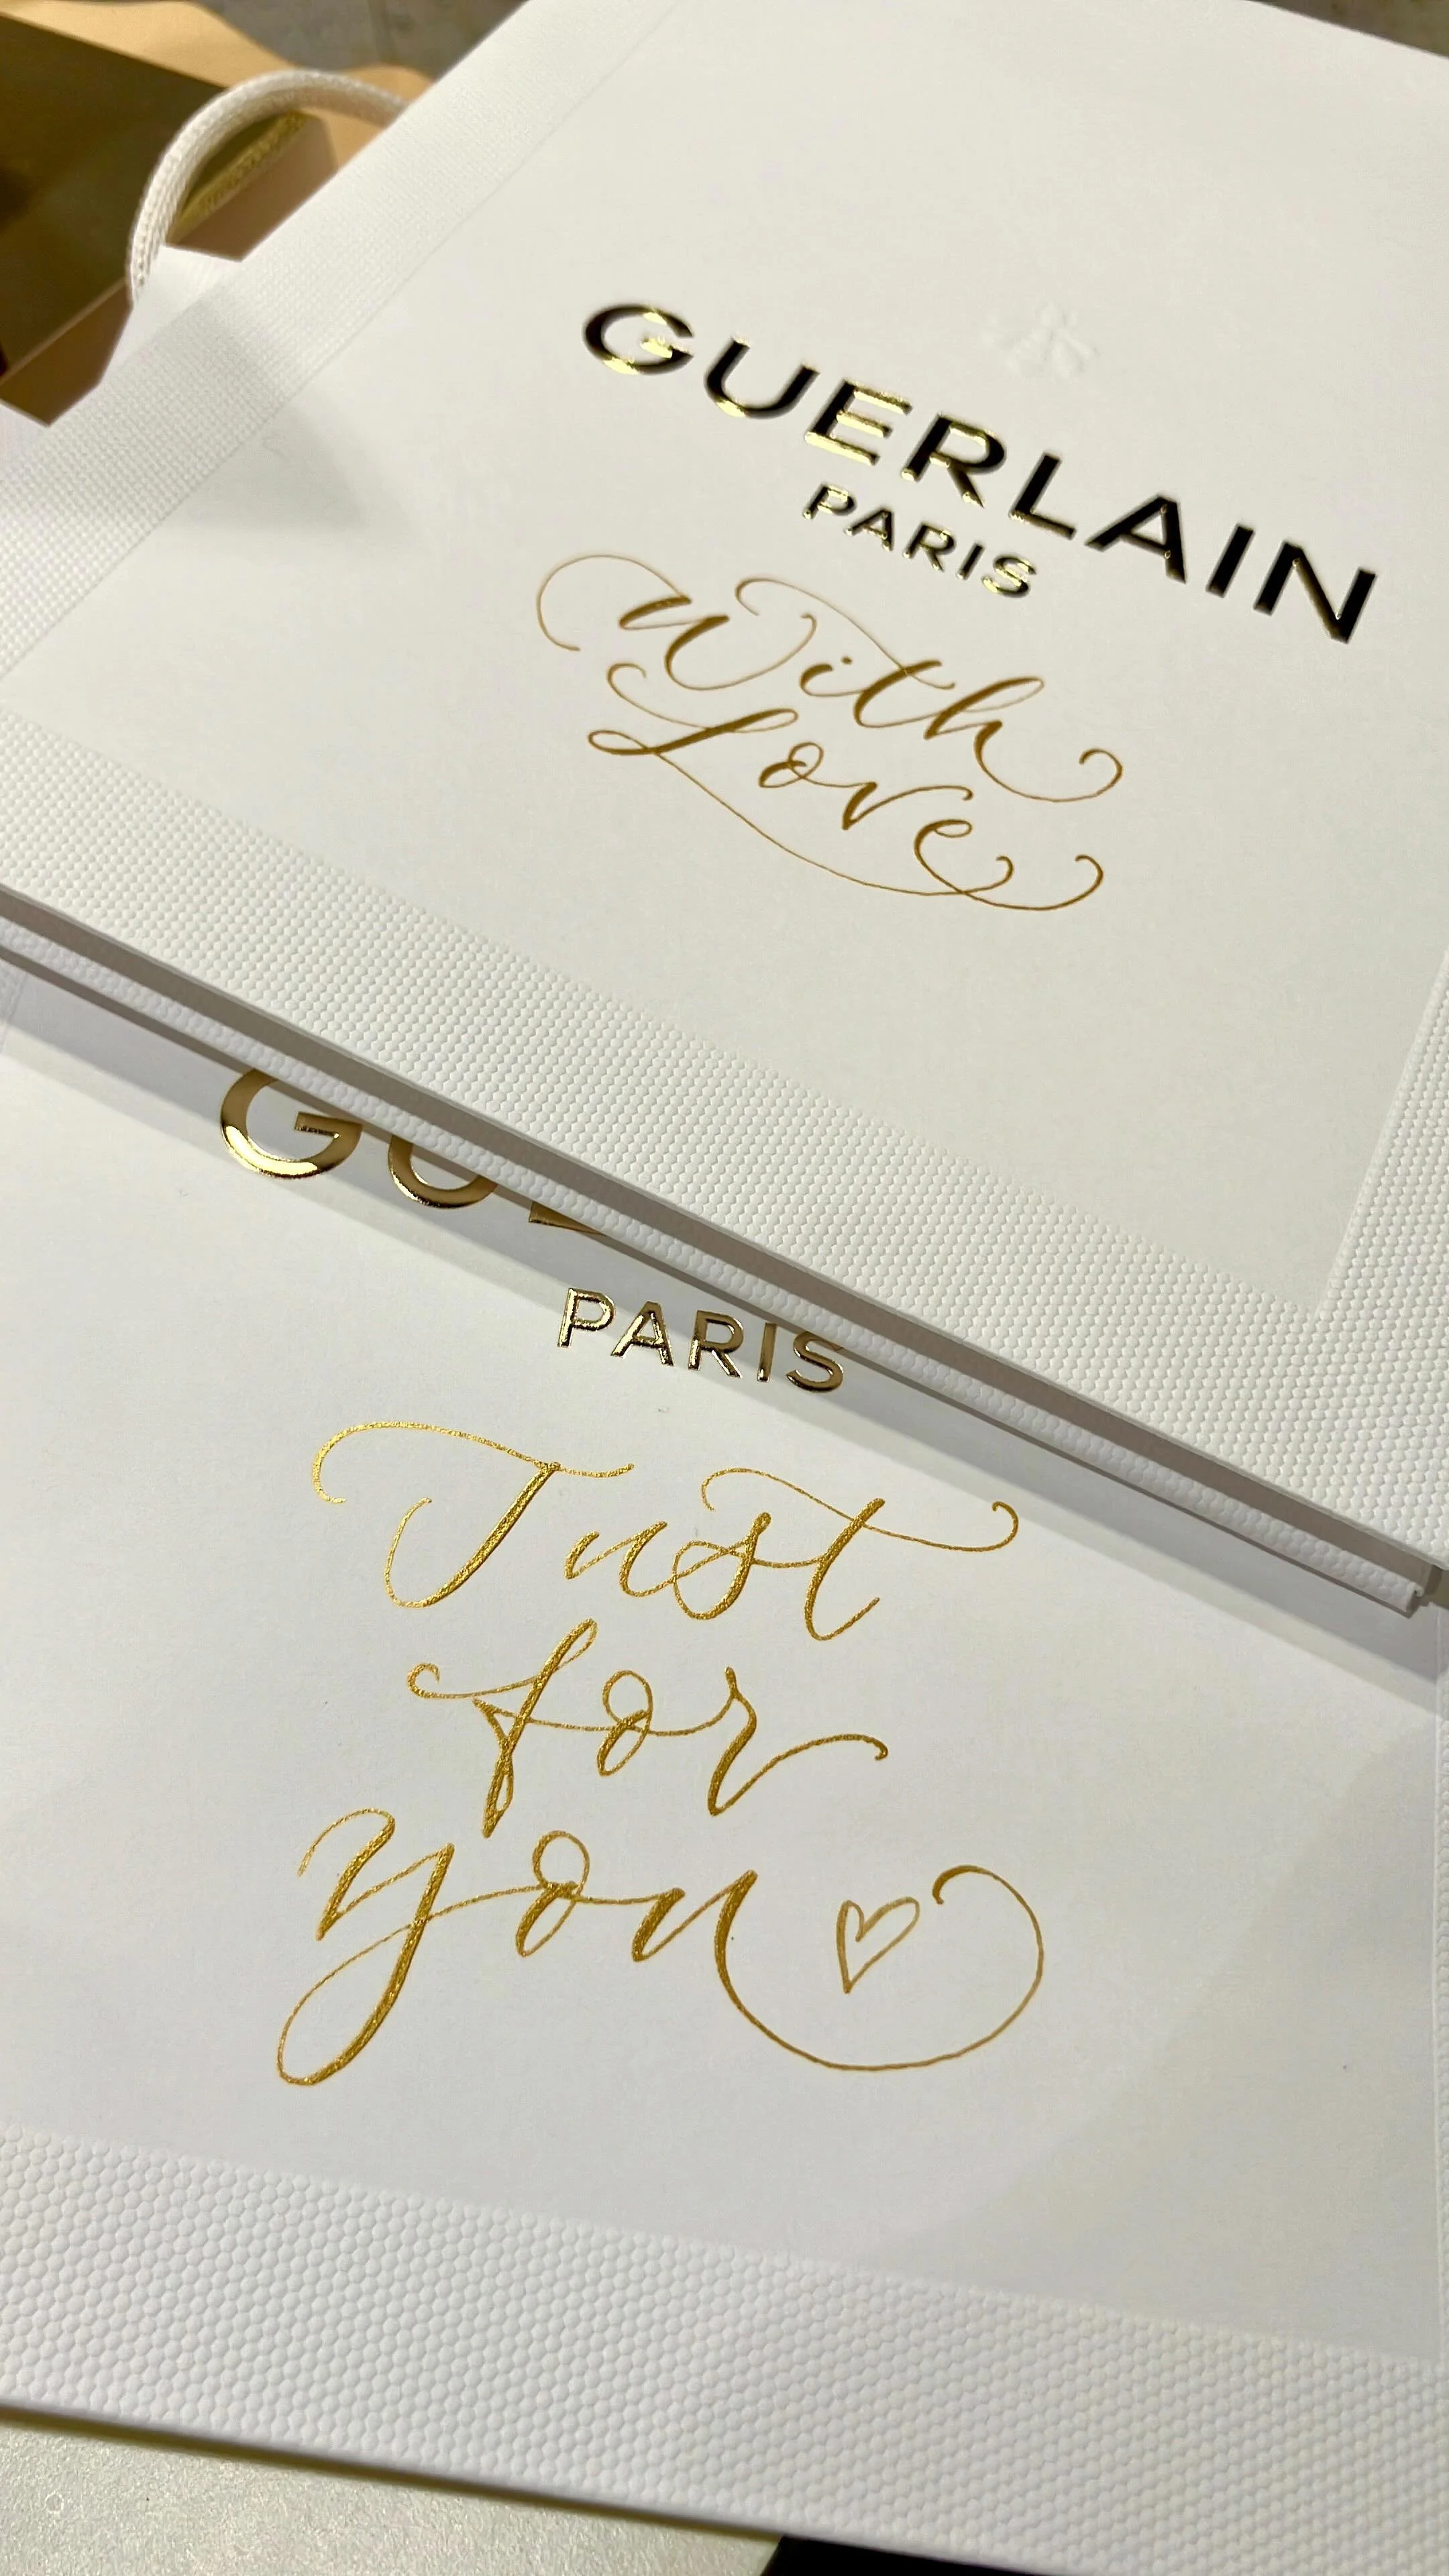 GUERLAIN
PARIS
With
Love
PARIS
Just
for
you